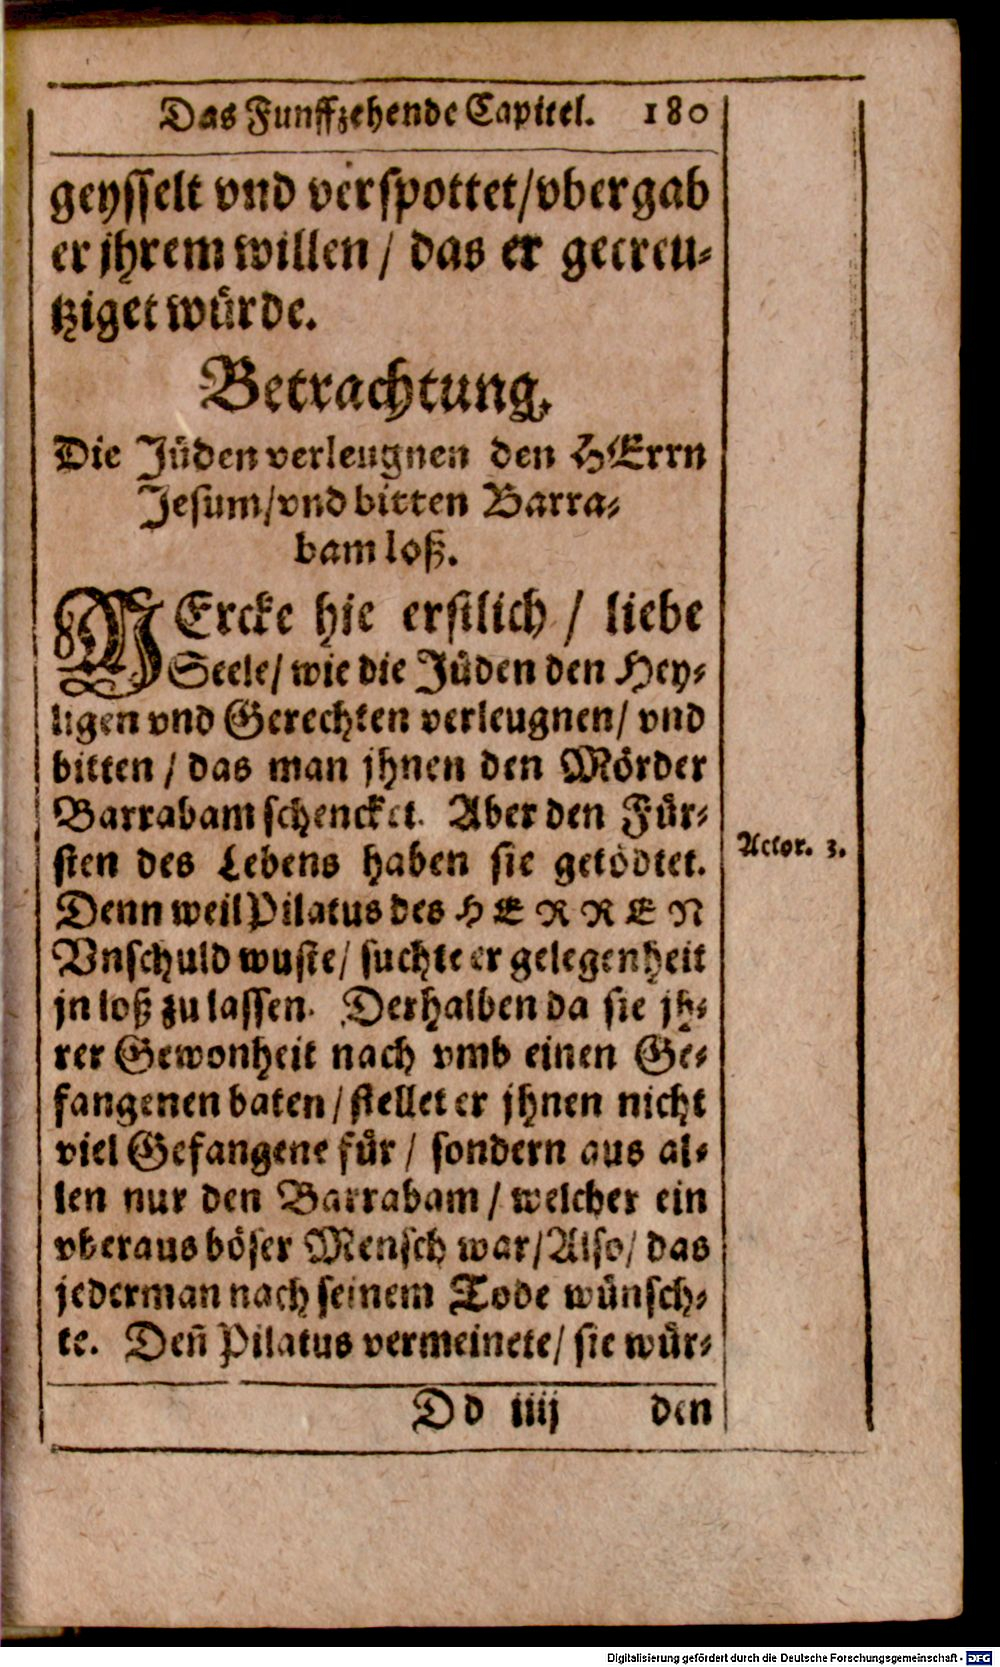 Das Funffzehende Capitel. 180
geysselt vnd verspottet/vbergab
er jhrem willen / das er gecreu-
tziget würde.
Betrachtung.
Die Jüden verleugnen den HErrn
Jesum/vnd bitten Barra-
bam loß.
MErcke hie erstlich / liebe
Seele/ wie die Jüden den Hey-
ligen vnd Gerechten verleugnen/ vnd
bitten / das man jhnen den Mörder
Barrabam schencket. Aber den Für-
sten des Lebens haben sie getödtet.
Actor. 3.
Denn weil Pilatus des HERREN
Vnschuld wuste/ suchte er gelegenheit
jn loß zu lassen. Derhalben da sie jh-
rer Gewonheit nach vmb einen Ge-
fangenen baten / stellet er jhnen nicht
viel Gefangene für / sondern aus al-
len nur den Barrabam / welcher ein
vberaus böser Mensch war/Also/ das
jederman nach seinem Tode wünsch-
te. Deñ Pilatus vermeinete/ sie wür-
Dd iiij den
Digitalisierung gefördert durch die Deutsche Forschungsgemeinschaft - DFG